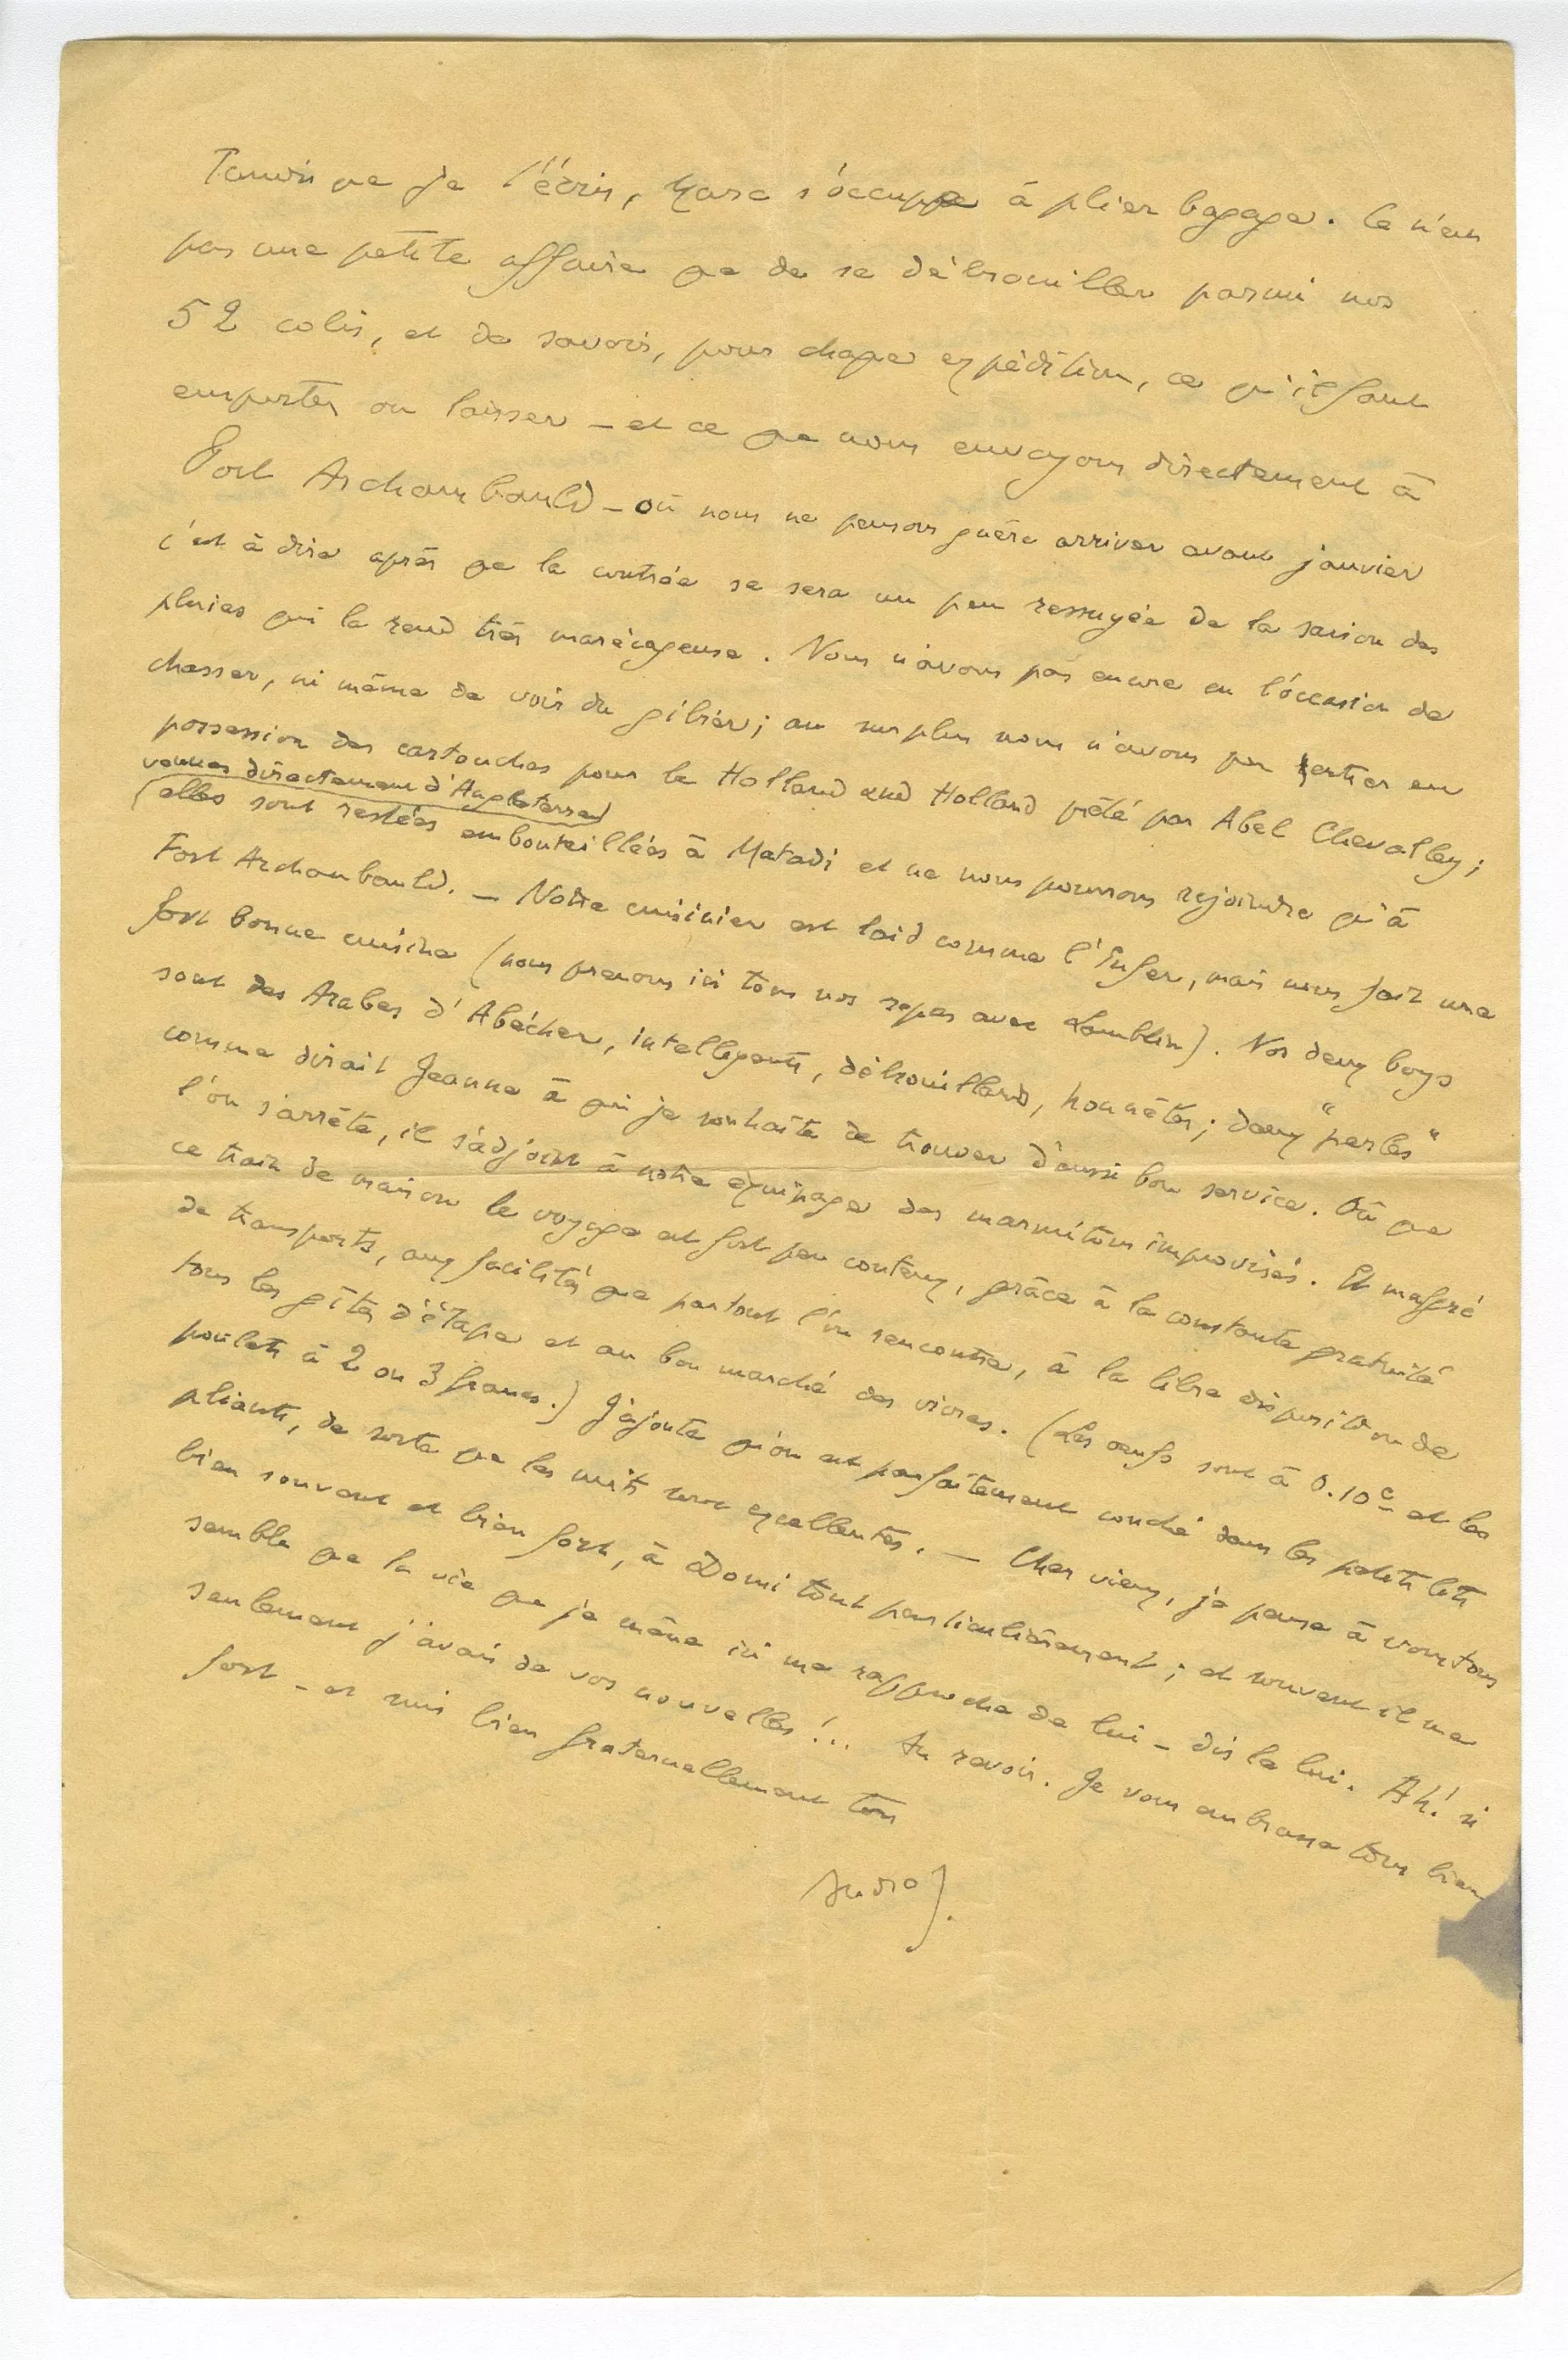 Tandis que je t'écris, Marc s'occupe à plier bagage. Ce n'est
pas une petite affaire que de se débrouiller parmi nos
52 colis, et de savoir, pour chaque expédition, ce qu'il faut
emporter ou laisser – et ce que nous envoyons directement à
Fort Archambauld – où nous ne pensons guère arriver avant janvier
c'est à dire après que la contrée se sera un peu ressuyée de la saison des
pluies qui la rend très marécageuse. Nous n'avons pas encore eu l'occasion de
chasser, ni même de voir du gibier; au surplus nous n'avons pu entrer en
possession des cartouches pour le Holland and Holland prêté par Abel Chevalley;
venues directement d'Angleterre
(elles sont restées embouteillées à Matadi et ne nous pourrons rejoindre qu'à
Fort Archambauld. – Notre cuisinier est laid comme l'Enfer, mais nous fait une
fort bonne cuisine (nous prenons ici tous nos repas avec Lamblin). Nos deux boys
sont des Arabes d'Abécher, intelligents, débrouillards, honnêtes; deux "perles"
comme dirait Jeanne à qui je souhaite de trouver d'aussi bon service. Où que
l'on s'arrête, il s'adjoint à notre équipage des marmitons improvisés. Et malgré
ce train de maison le voyage est fort peu couteux, grâce à la constante gratuité
de transports, aux facilités que partout l'on rencontre, à la libre disposition de
tous les gîtes d'étape et au bon marché des vivres. (Les œufs sont à 0.10c et les
poulets à 2 ou 3 francs.) J'ajoute qu'on est parfaitement couché dans les petits lits
pliants, de sorte que les nuits sont excellentes. – Cher vieux, je pense à vous tous
bien souvent et bien fort, à Domi tout particulièrement; et souvent il me
semble que la vie que je mène ici me rapproche de lui – dis le lui. Ah! si
seulement j'avais de vos nouvelles!.. Au revoir. Je vous embrasse tous bien
fort – et suis bien fraternellement ton
André G.